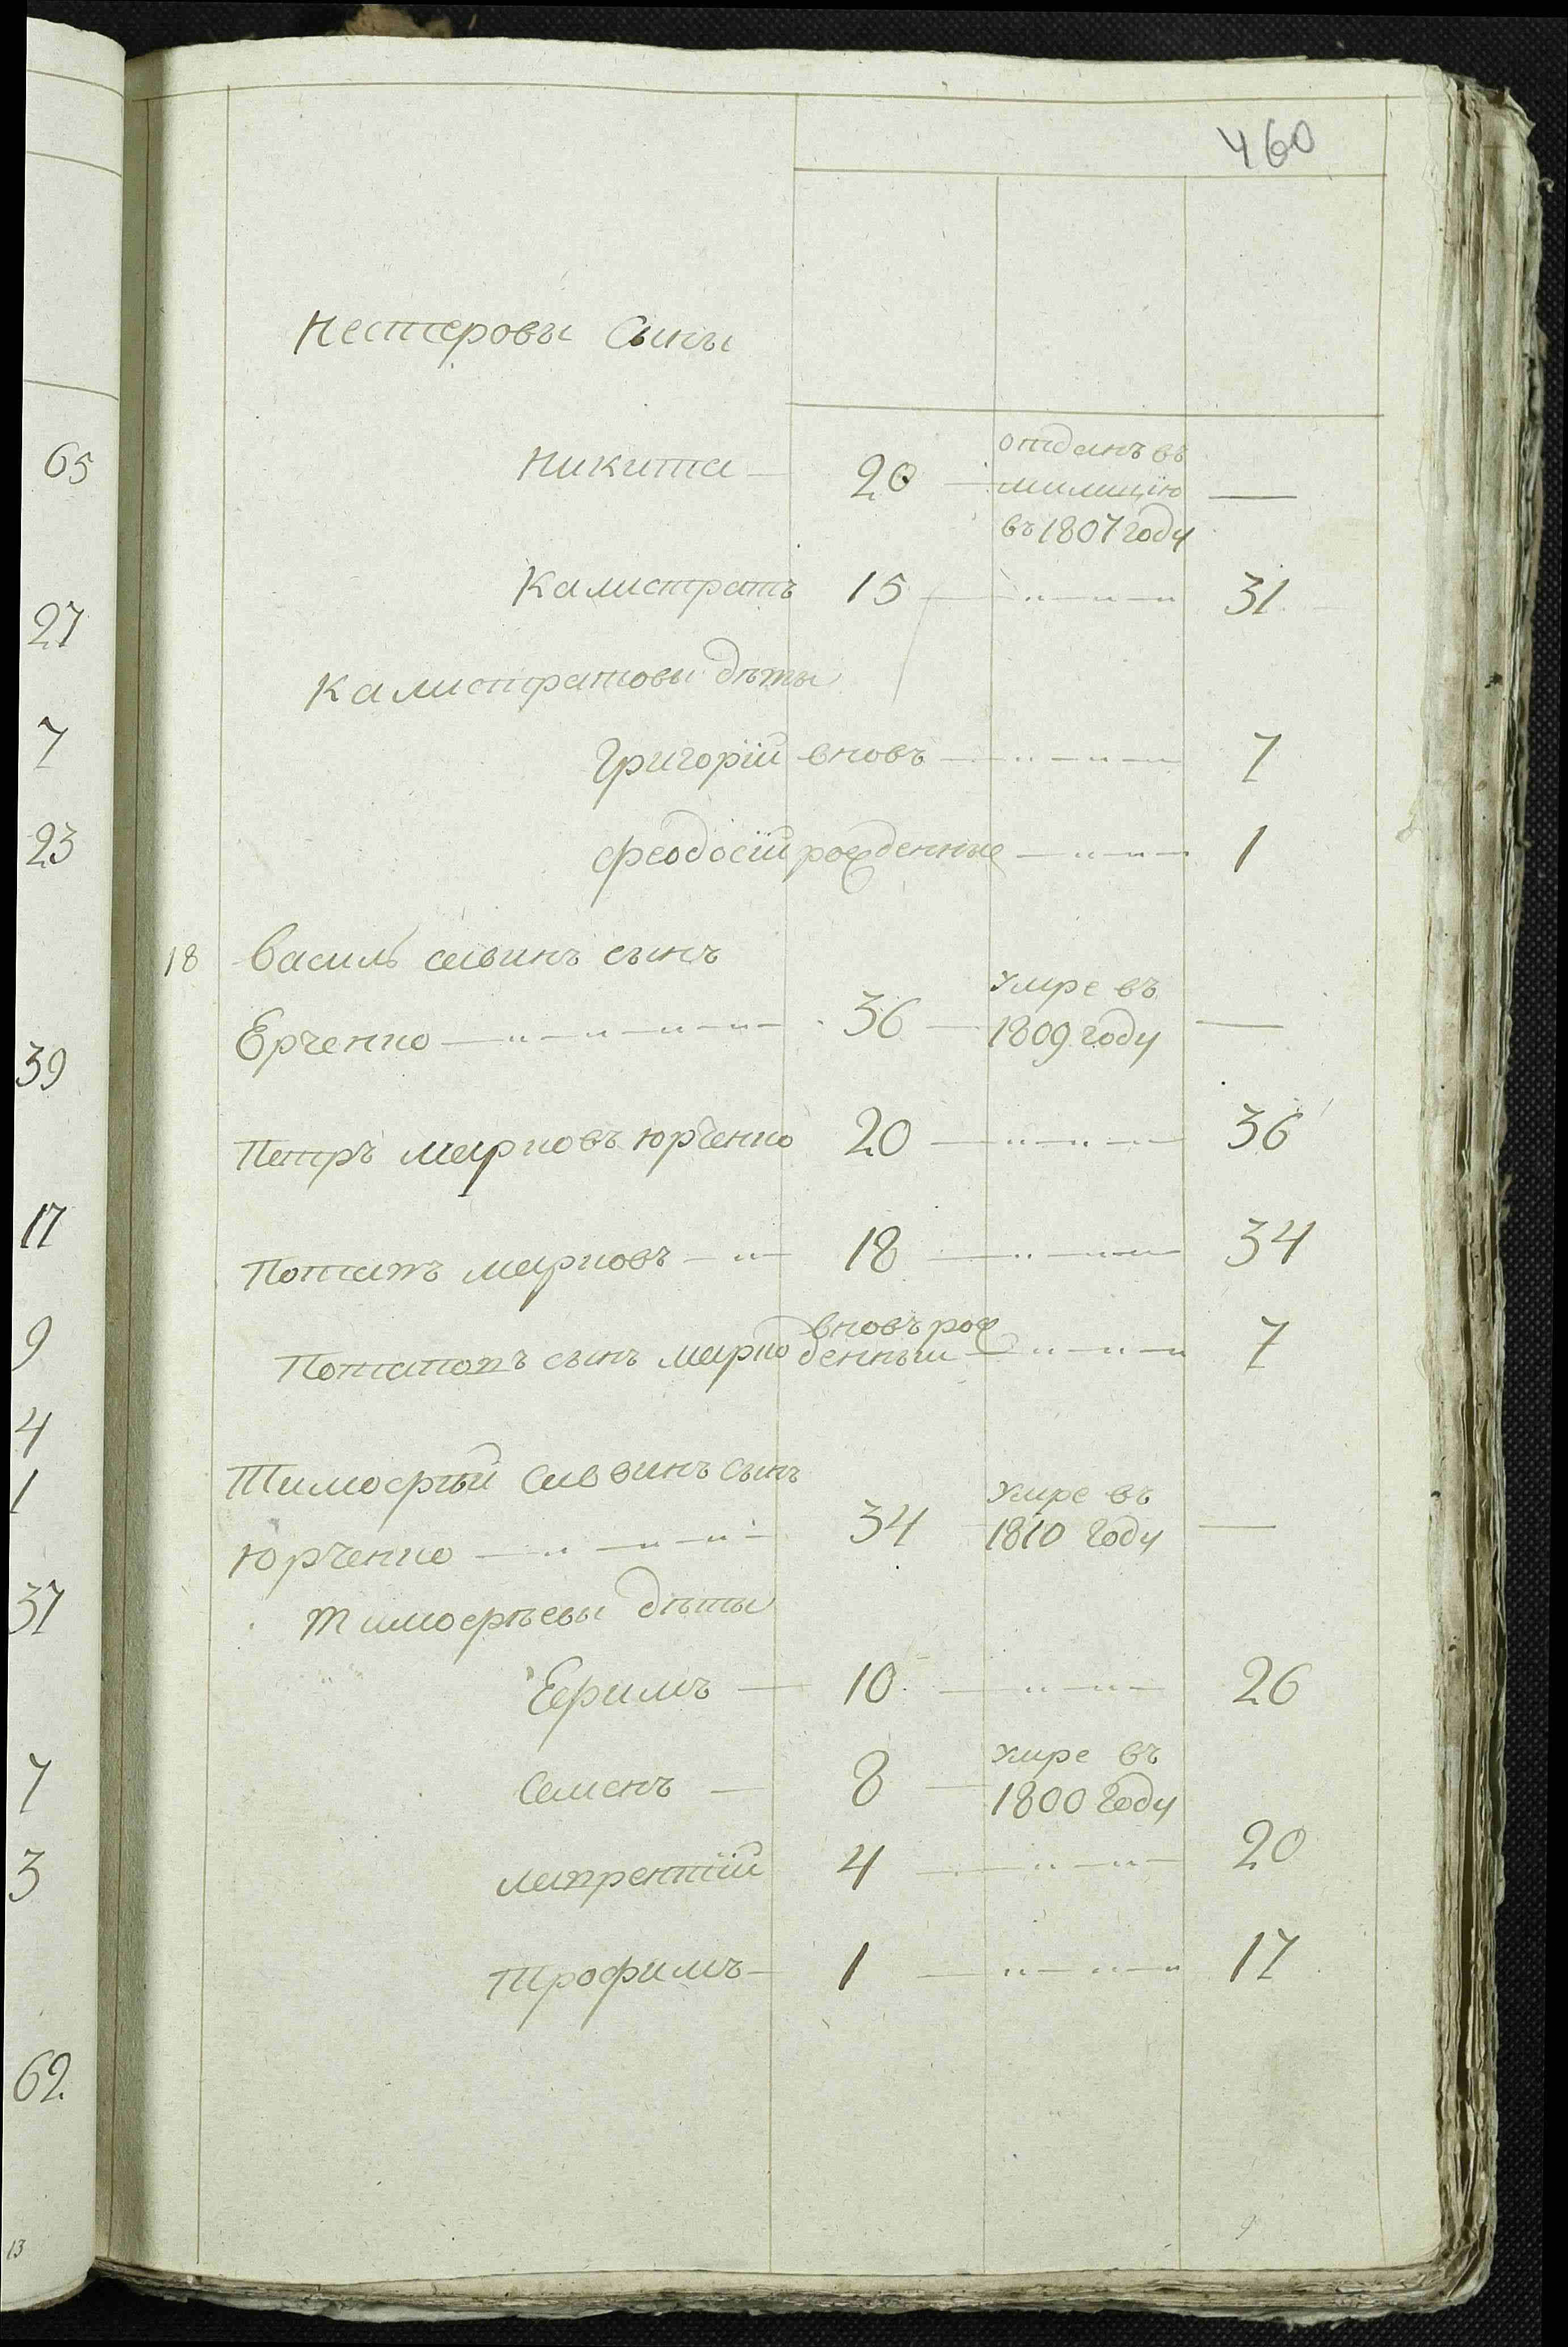 65
27
7
23
39
17
9
4
1
37
7
3
62
13
460
Нестеровы Сыны
Никита — 20 — отданъ въ
милицію —
въ 1807 году
Калистратъ 15 — 31
Калистратовы дѣты
Григорій вновь — 7
Феодосій рожденные — 1
18 Василь савинъ сынъ
Ерченко — 36 — умре въ
1809 году —
Петръ марковъ юрченко 20 — 36
Потапъ марковъ — 18 — 34
вновь рож
Потаповъ сынъ марко денный — 7
Тимофѣй Саввинъ сынъ
Юрченко — 34 умре въ
1810 году —
Тимофѣевы дѣты
Ефимъ — 10 — 26
Семенъ — 8 — умре въ
1800 году
лаврентій 4 — 20
Трофимъ — 1 — 17